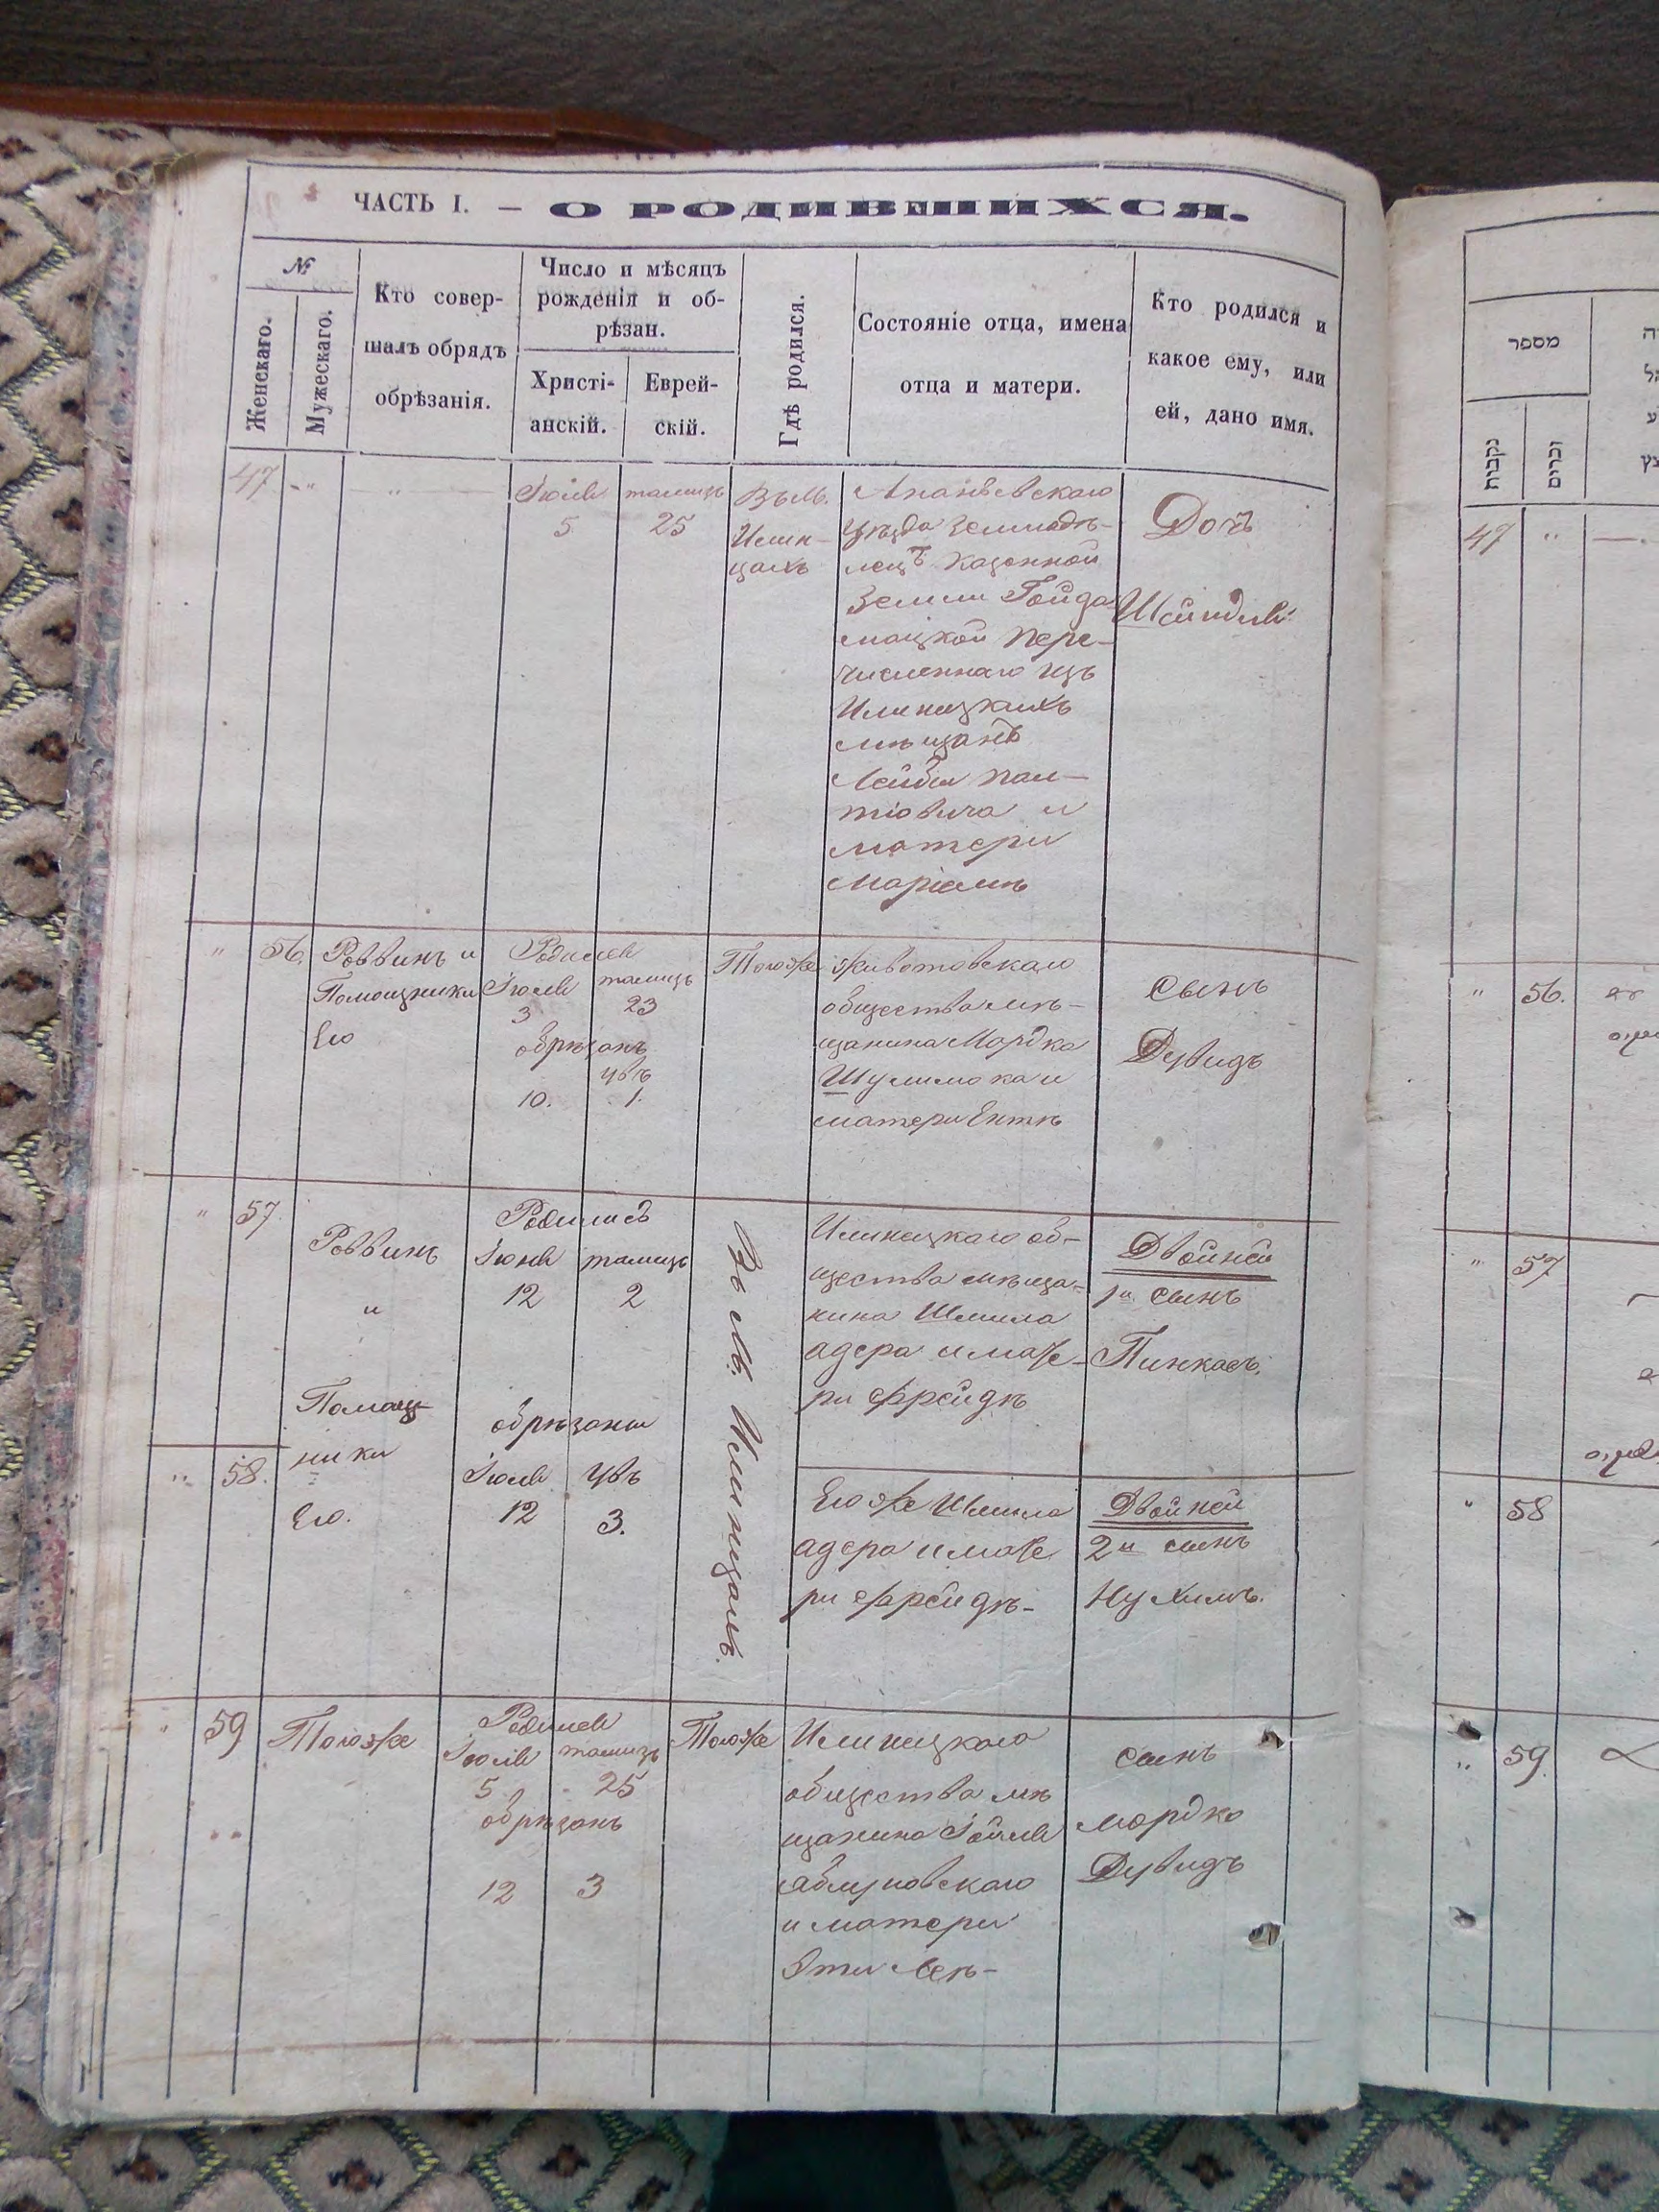 ЧАСТЬ I. — О РОДИВШИХСЯ.
№
Женскаго.
Мужескаго.
Кто совер-
шалъ обрядъ
обрѣзанія.
Число и мѣсяцъ
рожденія и об-
рѣзан.
Христі-
анскій.
Еврей-
скій.
Гдѣ родился.
Состояніе отца, имена
отца и матери.
Кто родился и
какое ему, или
ей, дано имя.
47
Іюля
5
тамизъ
25
Въ м.
Илин-
цахъ
Ананьевскаго
уѣзда земледѣ-
лецъ казенной
земли Гойда
мацкой пере-
численнаго изъ
Илинецкихъ
мѣщанъ
Лейбы
и
матери
Маріамъ
Дочь
Шейндля
" 56.
Раввинъ и
Помощники
Его
Родился
Іюля тамизъ
3 23
обрѣзанъ
увъ
10. 1.
Тогоже
Животовскаго
общества мѣ-
щанина Мордка
Шулимока и
матери Ентѣ
Сынъ
Дувидъ
" 57.
Раввинъ
и
Помощ-
ники
Его.
Родились
Іюня тамизъ
12 2
обрѣзаны
Іюля увъ
12 3.
Въ м. Илинцахъ.
Илинецкаго об-
щества мѣща-
нина Шмила
адера и мате-
ри Фрейдѣ
Двойней
1й сынъ
Пинкасъ.
" 58.
Его же Шмила
адера и мате
ри Фрейдѣ-
Двойней
2й сынъ
Нухимъ.
" 59
Тогоже
Родился
Іюля тамизъ
5 25
обрѣзанъ
12 3
Тогоже
Илинецкаго
общества мѣ
щанина
и матери
Эти Леѣ-
сынъ
Мордко
Дувидъ
מספר
נקבות
זכרים
47 "
" 56.
" 57
" 58
" 59.